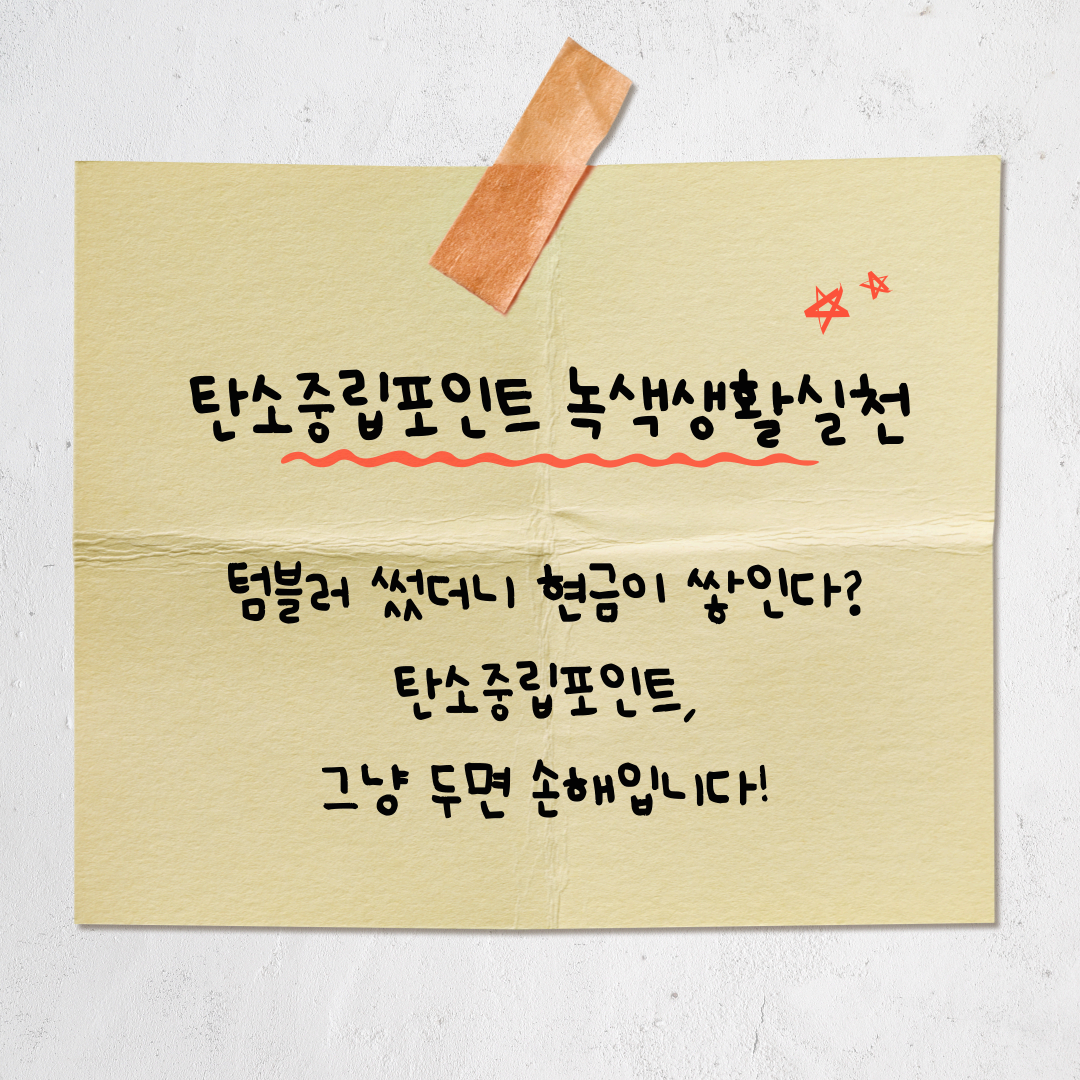 탄소중립포인트 녹색생활실천
텀블러 썼더니 현금이 쌓인다?
탄소중립포인트,
그냥 두면 손해입니다!